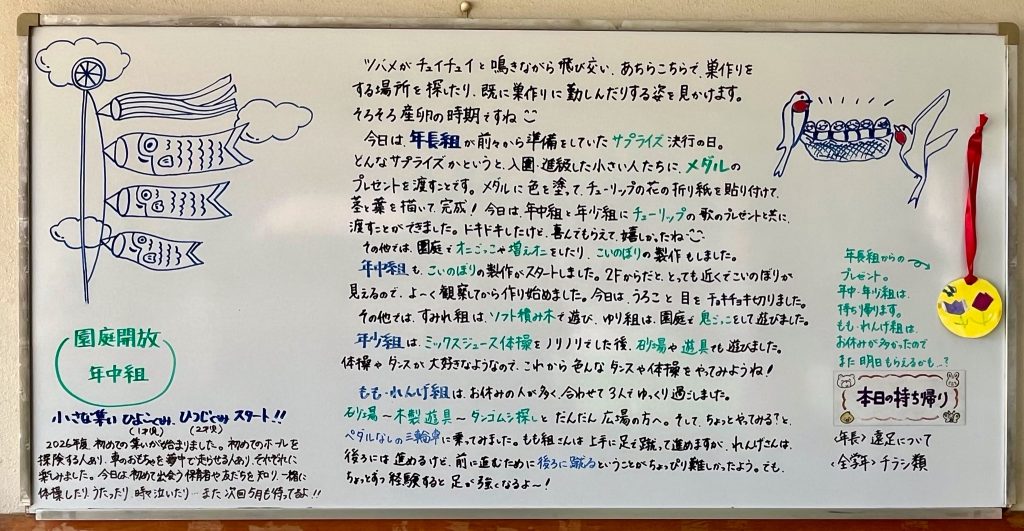 ツバメが チュイチュイと 鳴きながら 飛び交い、あちらこちらで、巣作りを
する場所を 探したり、既に巣作りに 勤しんだりする姿を 見かけます。
そろそろ産卵の時期ですね
今日は、年長組が前々から準備をしていた サプライズ 決行の日。
どんなサプライズかというと、入園・進級した小さい人たちに、メダルの
プレゼントを渡すことです。メダルに色を塗って、チューリップの花の折り紙を貼り付けて、
茎と葉を描いて、完成！今日は、年中組と年少組にチューリップの歌のプレゼントと共に、
渡すことができました。ドキドキしたけど、喜んでもらえて、嬉しかったね
その他では、園庭でオニごっこや増えオニをしたり、こいのぼりの製作もしました。
年中組も、こいのぼりの製作がスタートしました。2Fからだと、とっても近くでこいのぼりが
見えるので、よ〜く観察してから作り始めました。今日は、うろこと目をチョキチョキ切りました。
その他では、すみれ組は、ソフト積み木で遊び、ゆり組は、園庭で鬼ごっこをして遊びました。
年少組は、ミックスジュース体操をノリノリでした後、砂場や遊具でも遊びました。
体操やダンスが大好きなようなので、これから色んなダンスや体操をやってみようね！
もも・れんげ組は、お休みの人が多く、合わせて3人でゆっくり過ごしました。
砂場〜木製遊具〜ダンゴムシ探しとだんだん広場の方へ。そして、ちょっとやってみる？と、
ペダルなしの三輪車に乗ってみました。もも組さんは上手に足で蹴って進めますが、れんげさんは、
後ろには進めるけど、前に進むために後ろに蹴るということがちょっぴり難しかったよう。でも、
ちょっとずつ経験すると足が強くなるよ〜！
園庭開放
年中組
小さな集い ひよこぐみ、ひつじぐみ スタート！！
(1才児) (2才児)
2026年度、初めての集いが始まりました。初めてのホールを
探険する人あり、車のおもちゃを夢中で走らせる人あり、それぞれに
楽しみました。今日は初めて出会う保育者や友だちを知り、一緒に
体操したり、うたったり、時々泣いたり…また次回5月も待ってるよ！！
年長組からの
プレゼント。
年中・年少組は、
持ち帰ります。
もも・れんげ組は、
お休みが多かったので
また明日もらえるかも…？
本日の持ち帰り
〈年長〉遠足について
〈全学年〉チラシ類